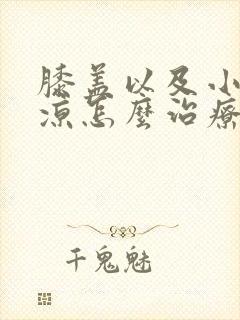 膝盖以及小
凉怎麼治療
千鬼魅